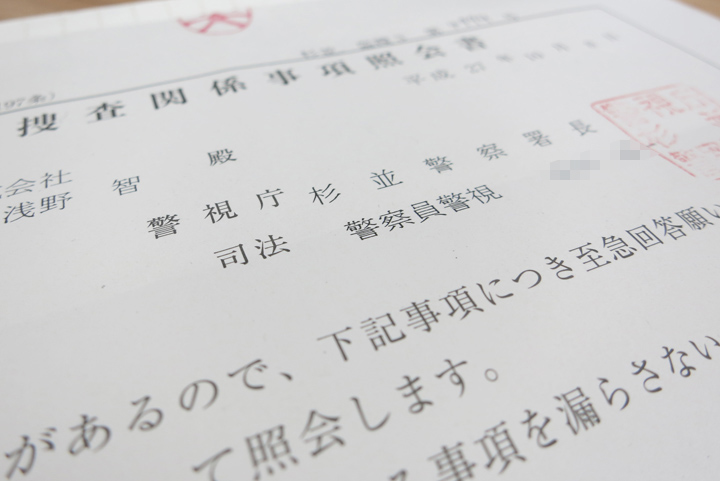 97条)
捜査関係事項照会書
平成27年
会社
浅野 智 殿
警視庁杉並警察署長
司法 警察員警視
があるので、下記事項につき至急回答願い
て照会します。
事項を漏らさない